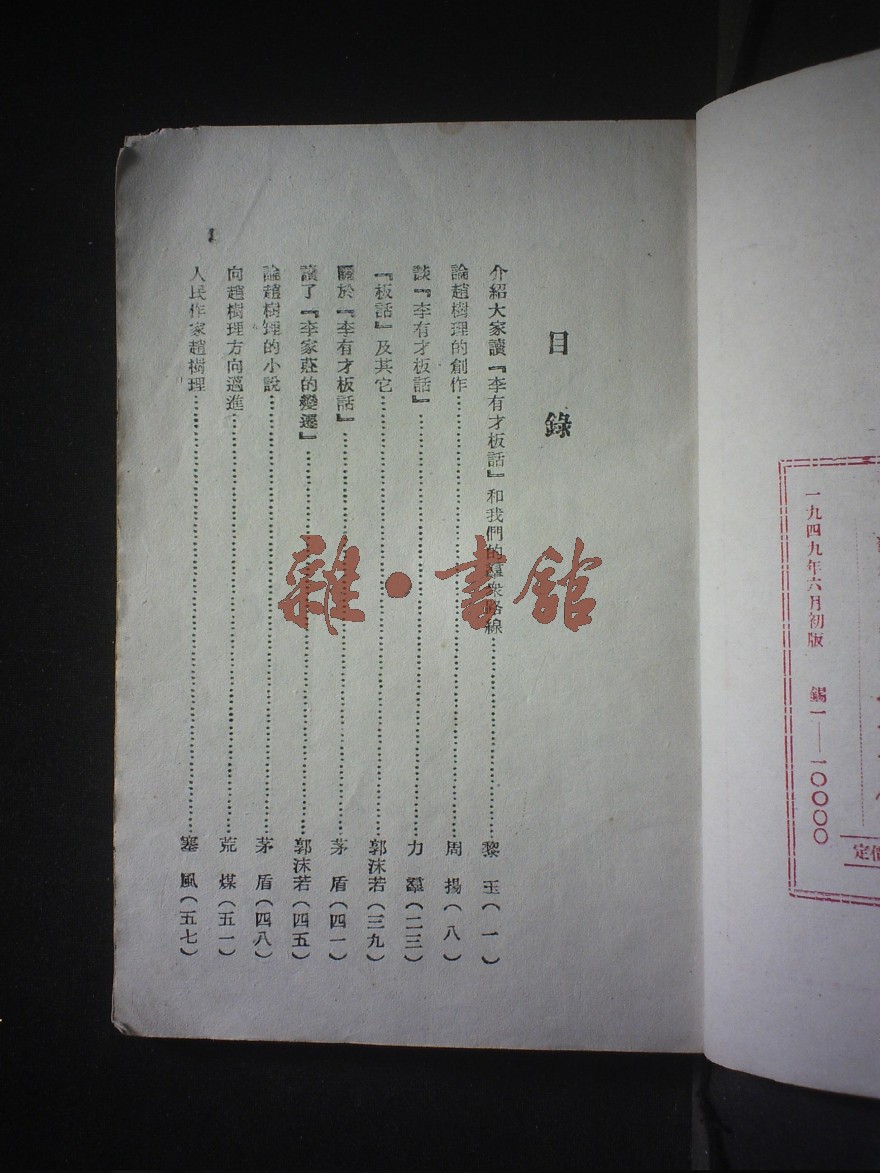 一九四九年六月初版 錫一—一〇〇〇〇
定價
目錄
介紹大家讀『李有才板話』和我們的羣衆路線……黎玉（一）
論趙樹理的創作……周揚（八）
談『李有才板話』……力羣（二三）
『板話』及其它……郭沫若（三九）
關於『李有才板話』……茅盾（四一）
讀了『李家莊的變遷』……郭沫若（四五）
論趙樹理的小說……茅盾（四八）
向趙樹理方向邁進……荒煤（五一）
人民作家趙樹理……塞風（五七）
1
雜·書館